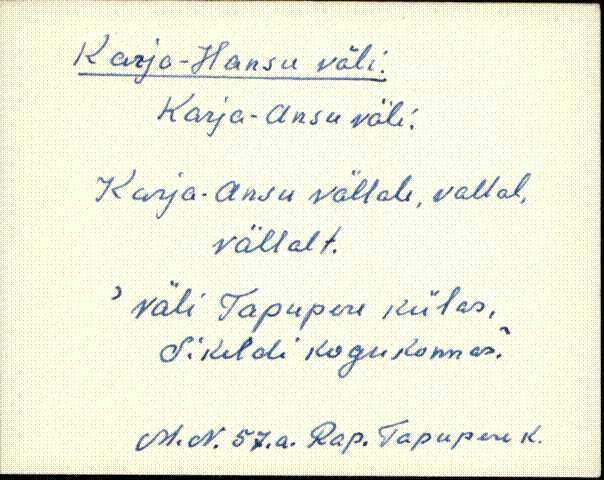 Karja-Hansu väli.
Karja-Ansu väli.
Karja-Ansu vällale, vallal,
vällalt.
väli Tapupere külas,
Sikeldi kogukonnas.
M.N. 57.a. Rap. Tapupere k.